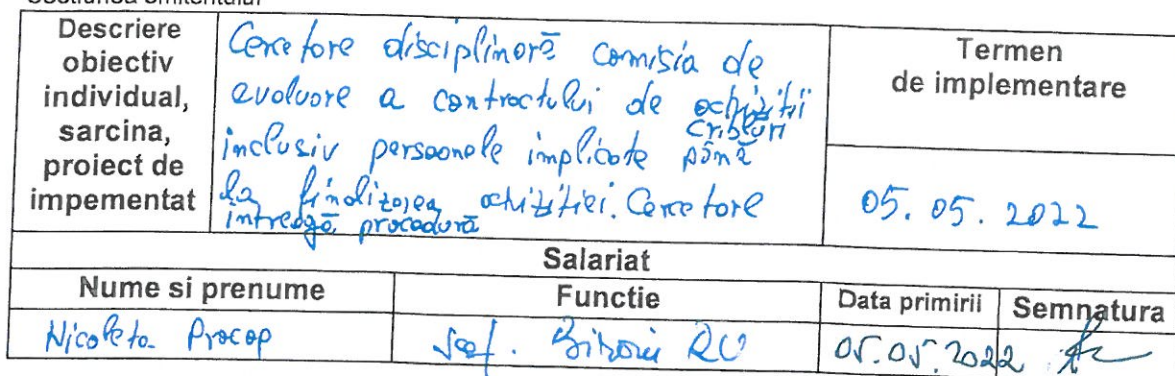 Descriere
obiectiv
individual,
sarcina,
proiect de
impementat
Cercetare disciplinară comisia de
evaluare a contractului de achiziții
cribluri
inclusiv persoanele implicate până
la finalizarea achiziției. Cercetare
întreagă procedură
Termen
de implementare
05. 05. 2022
Salariat
Nume si prenume
Functie
Data primirii
Semnatura
Nicoleta Procop
Sef. Birou RU
05.05.2022